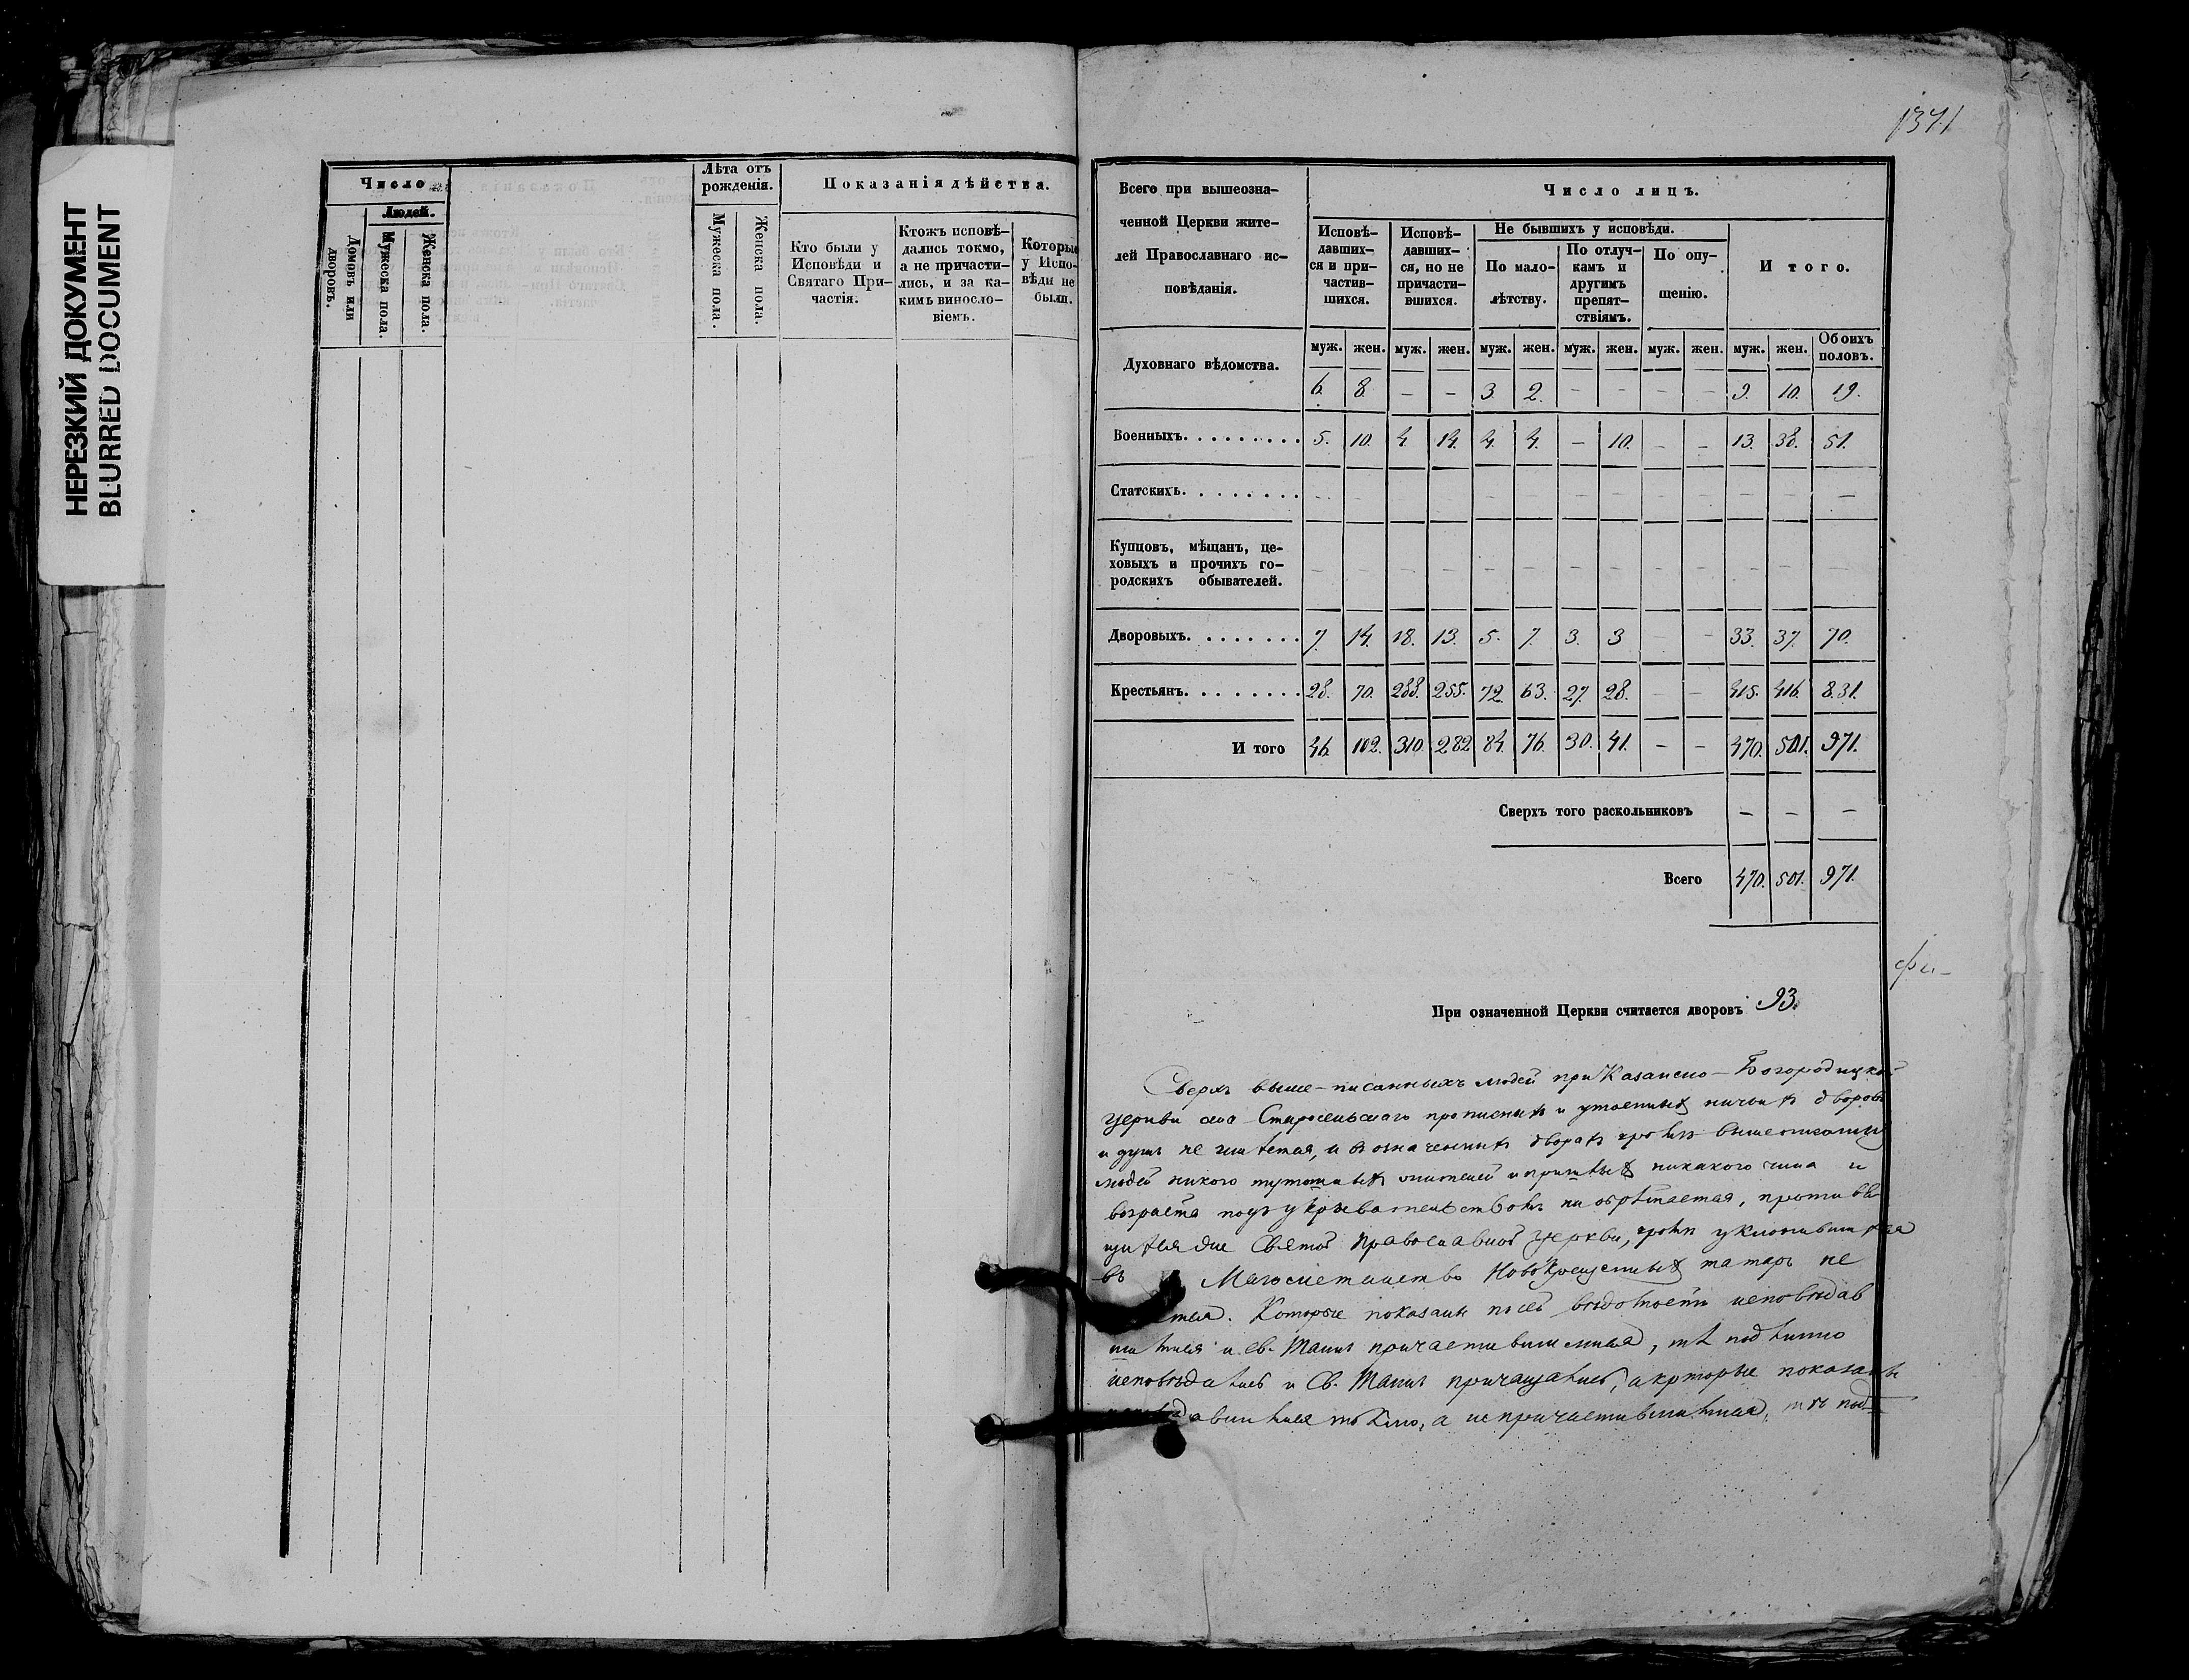 НЕРЕЗКИЙ ДОКУМЕНТ
BLURRED DOCUMENT
Число
Людей.
Домовъ или дворовъ.
Мужеска пола.
Женска пола.
Лѣта отъ рожденія.
Мужеска пола.
Женска пола.
Показанія дѣйства.
Кто были у
Исповѣди и
Святаго При-
частія.
Ктожъ исповѣ-
дались токмо,
а не причасти-
лись, и за ка-
кимъ винословіемъ.
Которые
у Испо-
вѣди не
были.
1371
Всего при вышеозна-
ченной Церкви жите-
лей Православнаго ис-
повѣданія.
Число лицъ.
Исповѣ-
давших-
ся и при-
частив-
шихся.
Исповѣ-
давших-
ся, но не
причасти-
вшихся.
Не бывшихъ у исповѣди.
По мало-
лѣтству.
По отлуч-
камъ и
другимъ
препят-
ствіямъ.
По опу-
щенію.
И того.
муж. жен. муж. жен. муж. жен. муж. жен. муж. жен. муж. жен. Обоихъ половъ.
Духовнаго вѣдомства. 6. 8. — — 3. 2. — — — — 9. 10. 19.
Военныхъ. 5. 10. 4. 14. 4. 4. — 10. — — 13. 38. 51.
Статскихъ. — — — — — — — — — — — — —
Купцовъ, мѣщанъ, це-
ховыхъ и прочихъ го-
родскихъ обывателей. — — — — — — — — — — — — —
Дворовыхъ. 7. 14. 18. 13. 5. 7. 3. 3 — — 33. 37. 70.
Крестьянъ. 28. 70. 288. 255. 72. 63. 27. 28. — — 415. 416. 831.
И того 46. 102. 310. 282. 84. 76. 30. 41. — — 470. 501. 971.
Сверхъ того раскольниковъ — — —
Всего 470. 501. 971.
При означенной Церкви считается дворовъ 93.
Сверхъ выше-писанныхъ людей при Казанско-Богородицкой
церкви села прописныхъ и утаенныхъ ничьихъ дворовъ
и душъ не имѣется, и въ означенныхъ дворахъ кромѣ вышеписанныхъ
людей никого тутошныхъ жителей и пришлыхъ никакого чина и
возраста подъ укрывательствомъ не обрѣтается, противя
щихся Святой православной церкви, кромѣ уклонившихся
въ Магометанство Новокрещенныхъ татаръ не
Которые показаны по сей вѣдомости исповѣдав
шимися и Св. Таинъ причастившимися, тѣ подлинно
исповѣдались и Св. Таинъ причащались, а которые показаны
токмо, а не причастившимися, тѣ под-